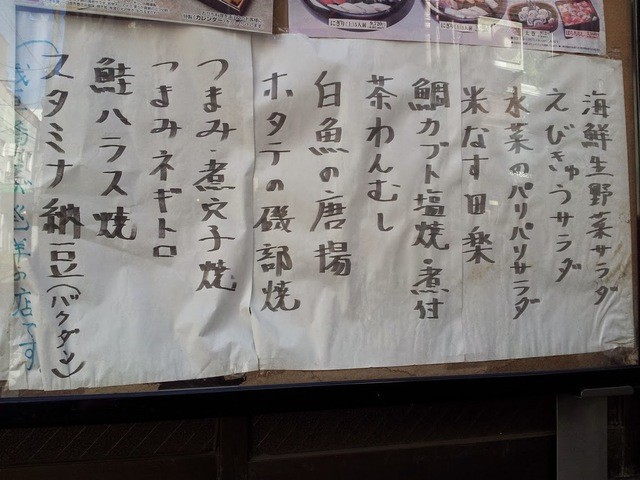 海鮮生野菜サラダ
えびきゅうサラダ
水菜のパリパリサラダ
米なす田楽
鯛カブト塩焼・煮付
茶わんむし
白魚の唐揚
ホタテの磯部焼
つまみ・煮穴子焼
つまみネギトロ
鮭ハラス焼
スタミナ納豆(バクダン)
の店です